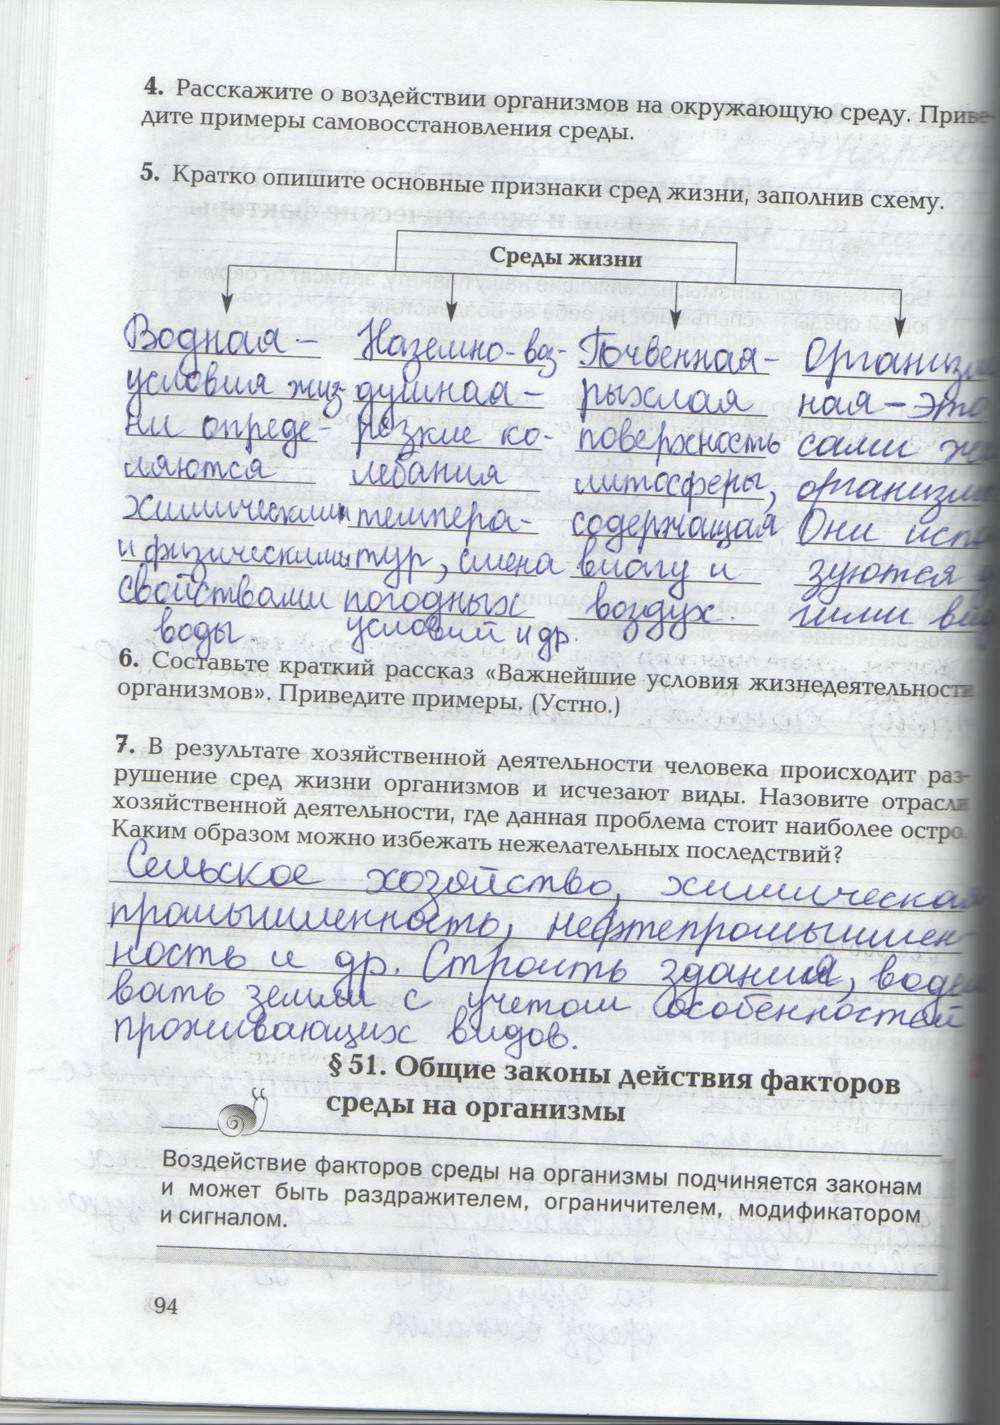 4. Расскажите о воздействии организмов на окружающую среду. Приве-
дите примеры самовосстановления среды.
5. Кратко опишите основные признаки сред жизни, заполнив схему.
Среды жизни
Водная –
условия жиз-
ни опреде-
ляются
химическими
и физическими
свойствами
воды
Наземно-воз-
душная –
резкие ко-
лебания
темпера-
тур, смена
погодных
условий и др.
Почвенная –
рыхлая
поверхность
литосферы,
содержащая
влагу и
воздух.
Организм
ная – это
сами
организм
Они испо
зуются
гими ви
6. Составьте краткий рассказ «Важнейшие условия жизнедеятельности
организмов». Приведите примеры. (Устно.)
7. В результате хозяйственной деятельности человека происходит раз-
рушение сред жизни организмов и исчезают виды. Назовите отрасли
хозяйственной деятельности, где данная проблема стоит наиболее остро.
Каким образом можно избежать нежелательных последствий?
Сельское хозяйство, химическая
промышленность, нефтепромышлен-
ность и др. Строить здания,
вать земли с учетом особенностей
проживающих видов.
§ 51. Общие законы действия факторов
среды на организмы
Воздействие факторов среды на организмы подчиняется законам
и может быть раздражителем, ограничителем, модификатором
и сигналом.
94